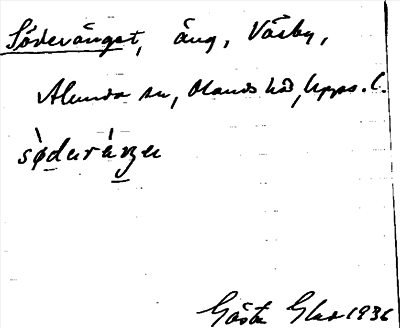 Söderänget, äng, Väsby,
Alunda sn, Olands hd, Upps. l.
sǿderàŋen
Gösta 1936